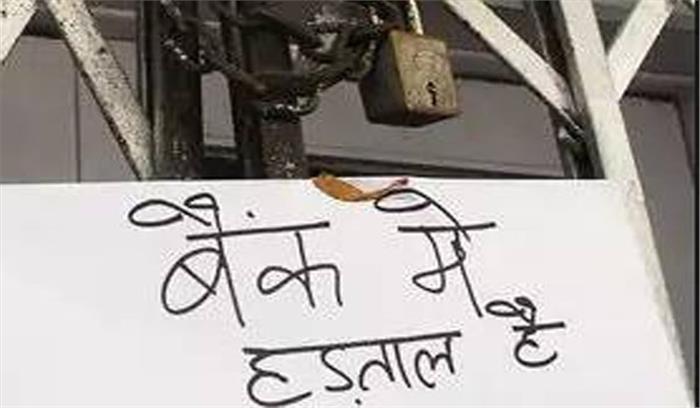 बैंक मे
हड़ताल है